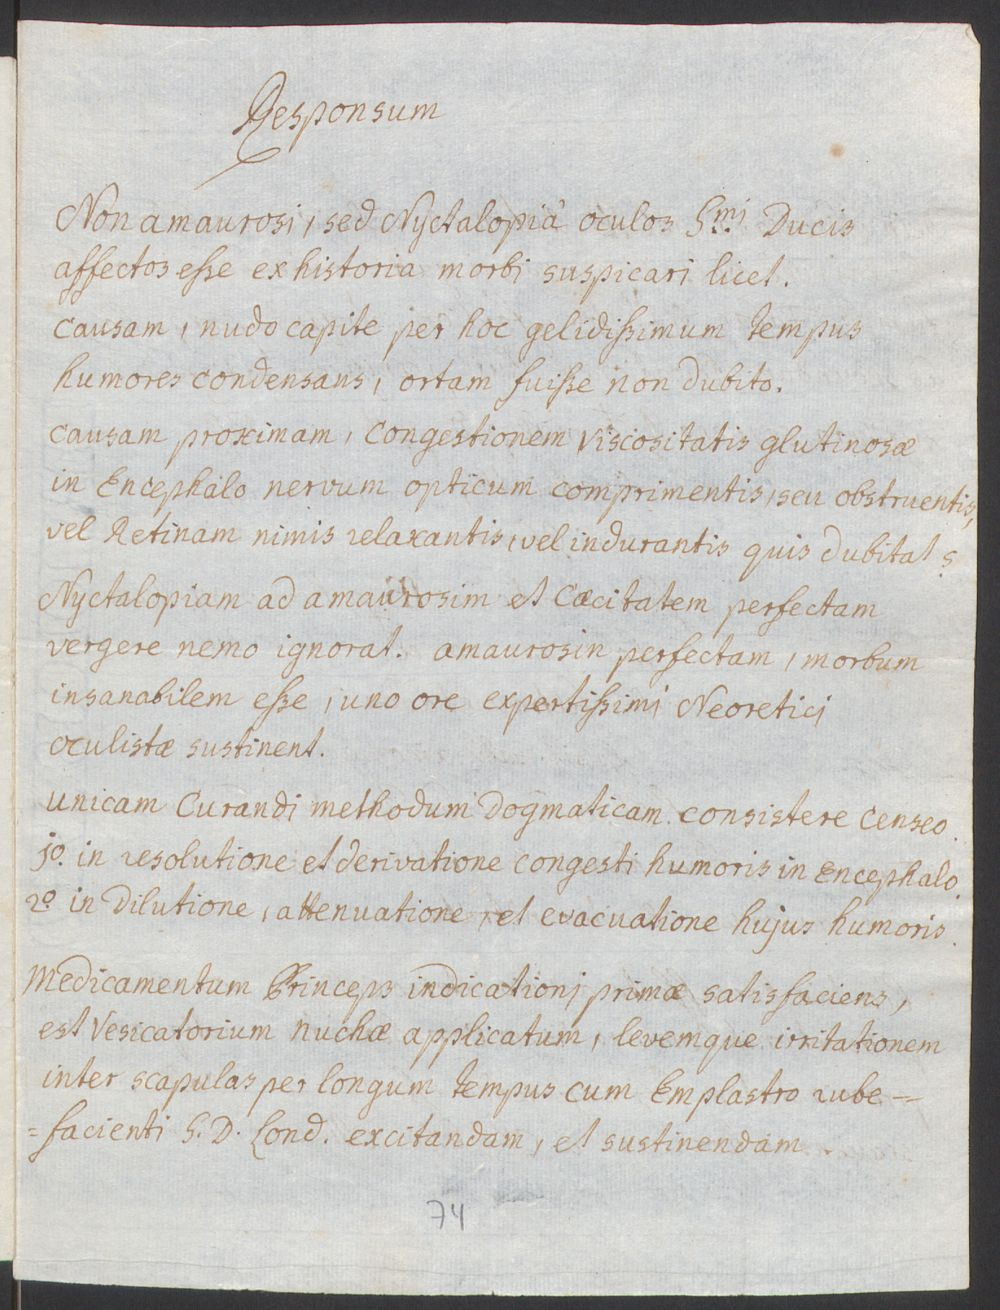 Responsum
Non amaurosi, sed Nyctalopia oculos S.mi Ducis
affectos esse ex historia morbi suspicari licet.
Causam, nudo capite per hoc gelidissimum tempus
humores condensans, ortam fuisse non dubito.
Causam proximam, Congestionem Viscositatis glutinosæ
in Encephalo nervum opticum comprimentis, seu obstruentis,
vel Retinam nimis relaxantis, vel indurantis quis dubitat?
Nyctalopiam ad amaurosim et Cæcitatem perfectam
vergere nemo ignorat. amaurosin perfectam, morbum
insanabilem esse, uno ore expertissimi Neoretici
oculistæ sustinent.
Unicam Curandi methodum Dogmaticam consistere Censeo.
jo. in resolutione et derivatione congesti humoris in Encephalo.
2o in Dilutione, attenuatione, et evacuatione hujus humoris.
Medicamentum Princeps indicationi primæ satisfaciens,
est Vesicatorium nuchæ applicatum, levemque irritationem
inter scapulas per longum tempus cum Emplastro rube=
=facienti S. D. Lond. excitandam, et sustinendam
74